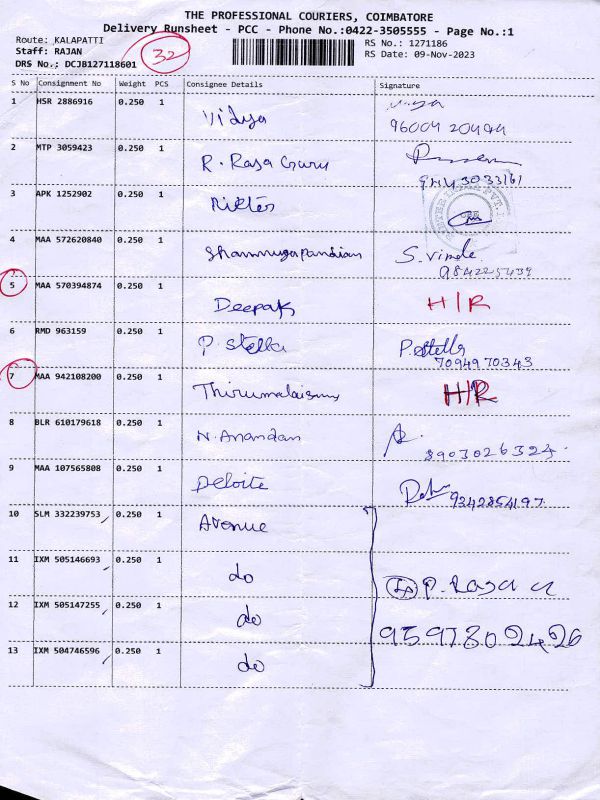 THE PROFESSIONAL COURIERS, COIMBATORE
Delivery Runsheet - PCC - Phone No.:0422-3505555 - Page No.:1
Route: KALAPATTI
RS No.: 1271186
Staff: RAJAN
RS Date: 09-Nov-2023
DRS No.; DCJB127118601
32
S No Consignment No Weight PCS Consignee Details Signature
1 HSR 2886916 0.250 1 Vidya
2 MTP 3059423 0.250 1 R. Raja Guru
3 APK 1252902 0.250 1
4 MAA 572620840 0.250 1 Shanmugapandian
5 MAA 570394874 0.250 1 Deepak H/R
6 RMD 963159 0.250 1 P. Stella P. Stella
7094970343
7 MAA 942108200 0.250 1 H/R
8 BLR 610179618 0.250 1 N. Anandan
8903026324
9 MAA 107565808 0.250 1 Deloite
9342854197
10 SLM 332239753 0.250 1 Avenue
11 IXM 505146693 0.250 1 do
12 IXM 505147255 0.250 1 do
9597802426
13 IXM 504746596 0.250 1 do